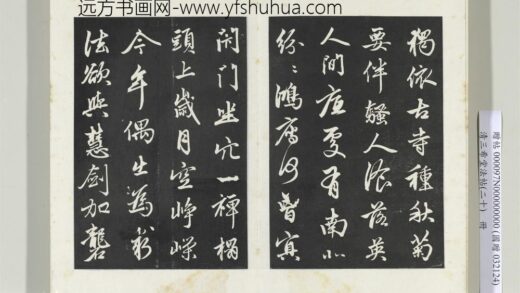 远方书画网：www.yfshuhua.com
獨依古寺種秋菊
要伴騷人餐落英
人間底處有南北
紛紛鴻雁何曾冥
閉門坐穴一禪榻
頭上歲月空崢嶸
今年偶出爲求
法欲與慧劍加礱
贈帖 000097N000000000 (國贈 032124)
清三希堂法帖(二十) 冊